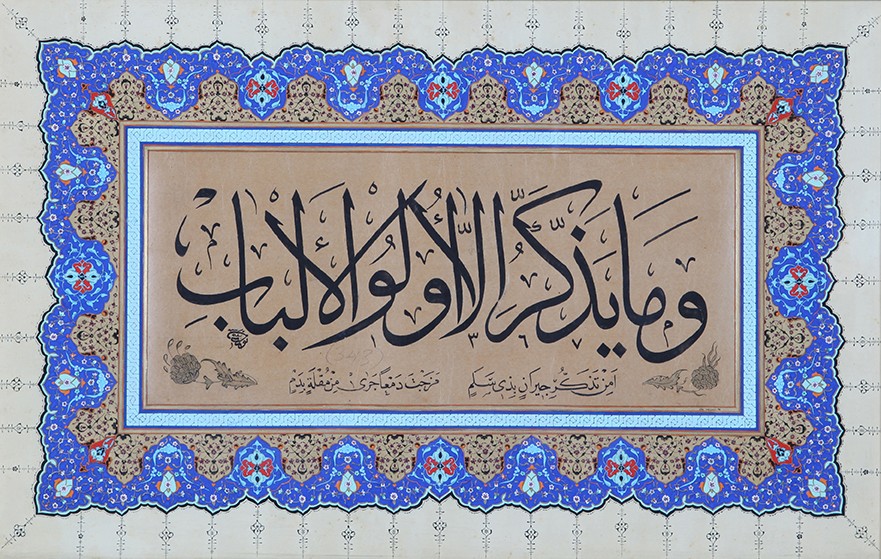 وَمَا يَذَّكَّرُ اِلَّا أُولُو الْأَلْبَابِ
١٣٦٧
اَمِنْ تَذَكُّرِ جِيرَانٍ بِذِى سَلَمٍ مَزَجْتَ دَمْعًا جَرَى مِنْ مُقْلَةٍ بِدَمِ